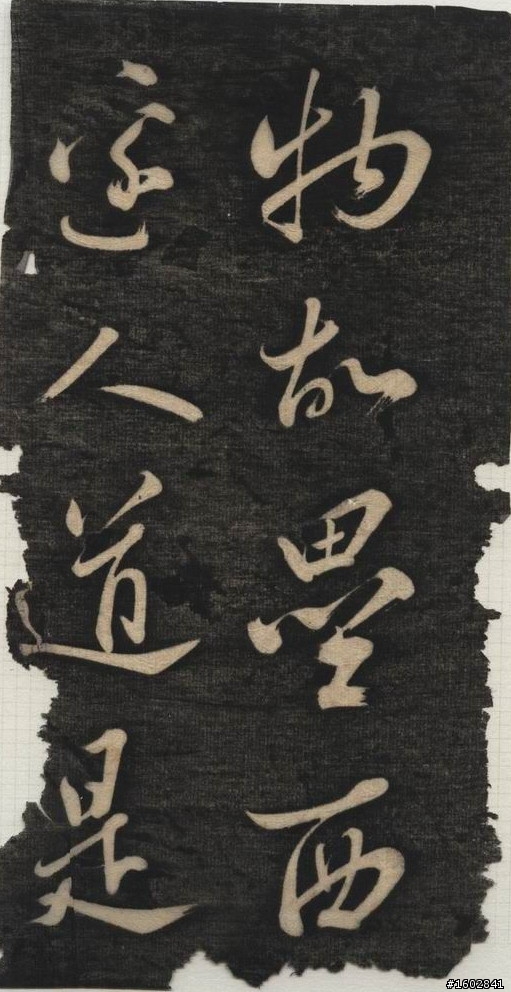 物故壘西
邊人道是
#1602841